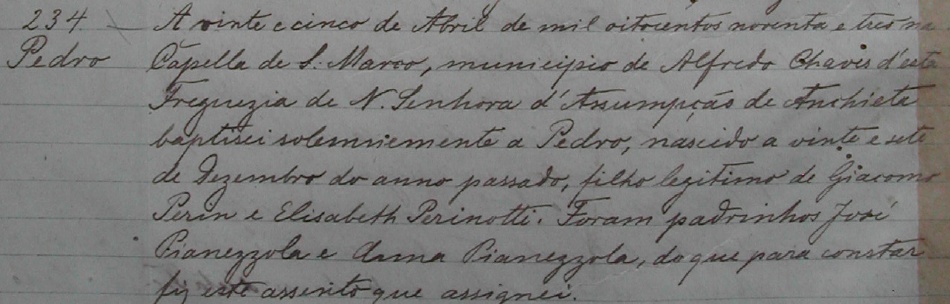 234 — A vinte e cinco de Abril de mil oitocentos noventa e tres na
Pedro Capella de S. Marco, municipio de Alfredo Chaves d'esta
Freguezia de N. Senhora d'Assumpção de Anchieta
baptisei solemniemente a Pedro, nascido a vinte e sete
de Dezembro do anno passado, filho legitimo de Giacomo
Perin e Elisabeth Perinotti. Foram padrinhos José
Pianezzola e Anna Pianezzola, do que para constar
fiz este assento que assignei.